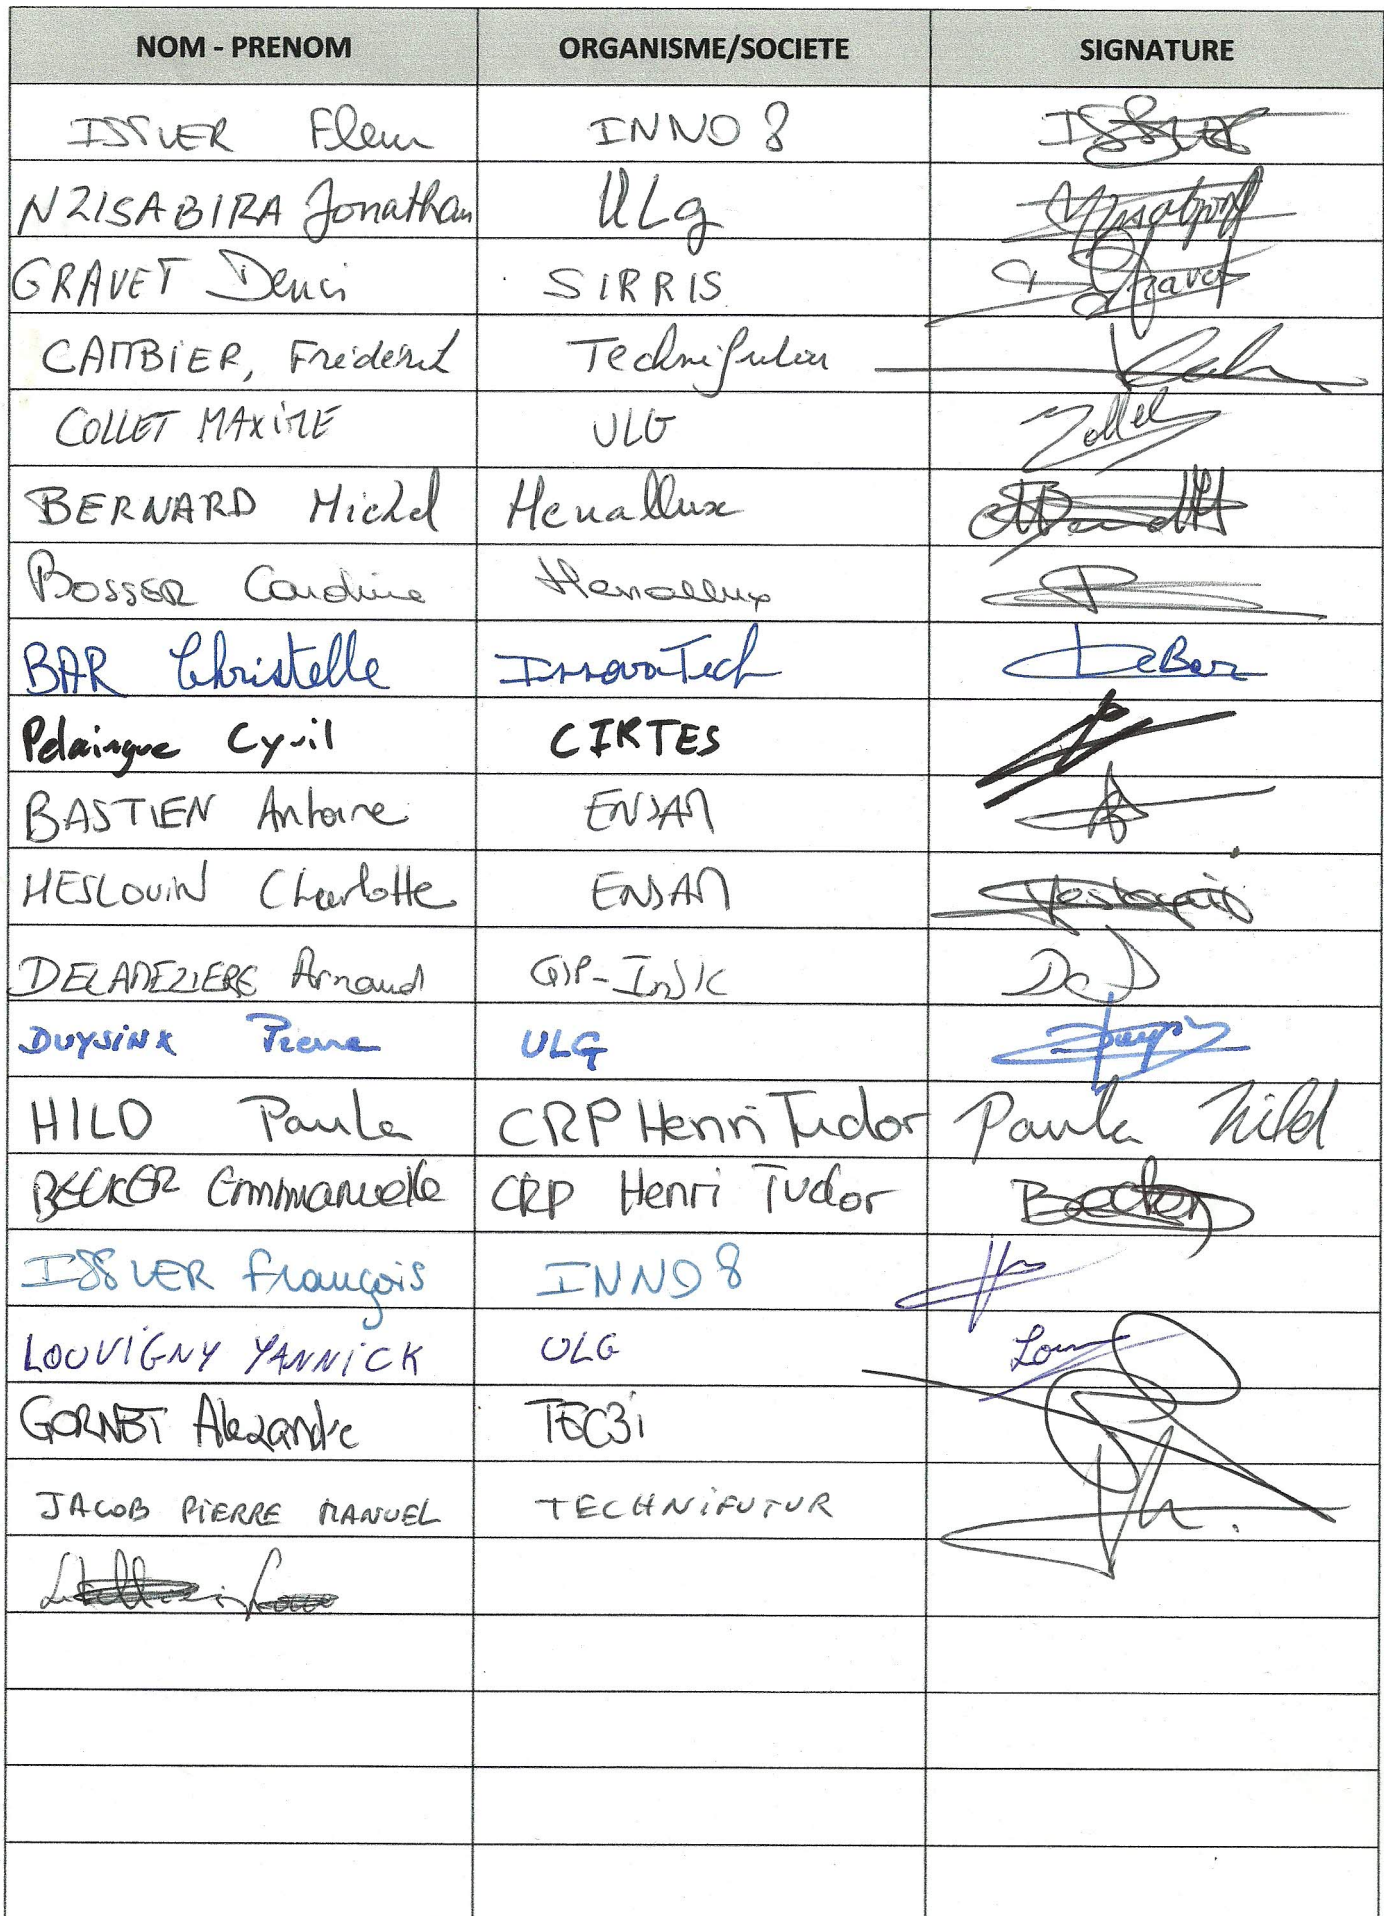 NOM - PRENOM ORGANISME/SOCIETE SIGNATURE
ISSLER Fleur INNO 8
NZISABIRA Jonathan ULg
GRAVET Denis SIRRIS Gravet
CAMBIER, Frédérick Technifutur
COLLET MAXIME ULG Collet
BERNARD Michel Henallux
BOSSER Caroline Henallux
BAR Christelle InnovaTech DeBar
Pelaingue Cyril CIRTES
BASTIEN Antoine ENSAM
HESLOUIN Charlotte ENSAM
DELAMEZIERE Arnaud GIP-InSIC
DUYSINX Pierre ULG
HILD Paula CRP Henri Tudor Paula Hild
BECKER Emmanuelle CRP Henri Tudor Becker
ISSLER François INNO 8
LOUVIGNY YANNICK ULG Lou
GORNET Alexandre TEC3i
JACOB PIERRE MANUEL TECHNIFUTUR